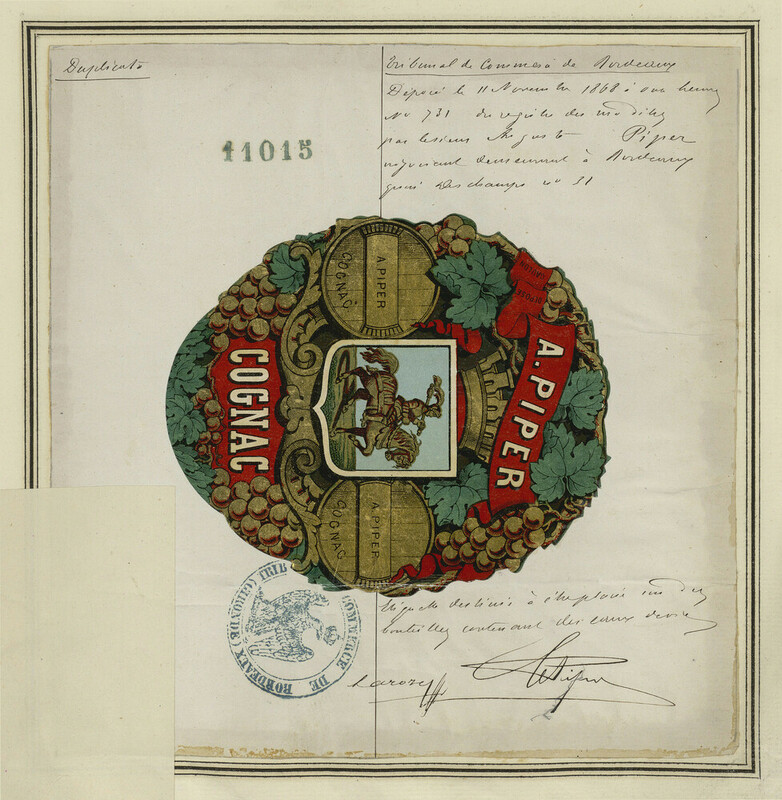 Duplicata
Tribunal de Commerce de Bordeaux
Déposé le 11 Novembre 1868 à onze heures
No 731 du registre des modèles
par le sieur Auguste Piper
négociant demeurant à Bordeaux
quai Deschamps no 31
11015
A. PIPER
COGNAC
A. PIPER
COGNAC
A. PIPER
COGNAC
étiquette destinée à être employée sur des
bouteilles contenant des eaux de vie
COMMERCE DE BORDEAUX (GIRONDE) TRIB
Laroze
APiper